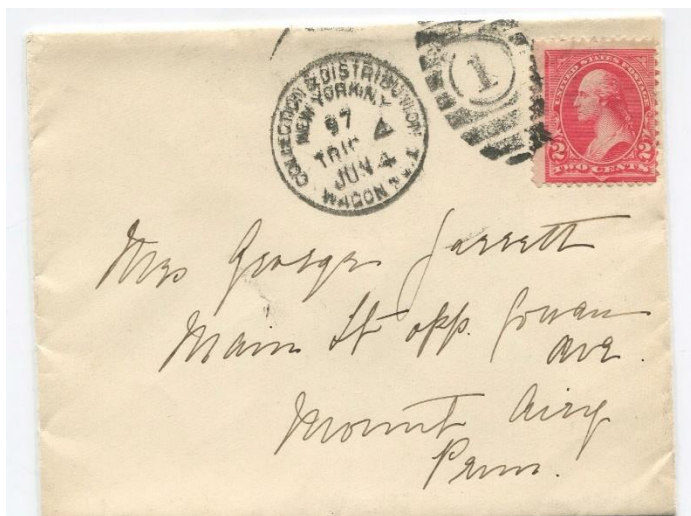 COLLECTION & DISTRIBUTION
NEW YORK, N.Y.
97
TRIP
JUN 4
WAGON
1
UNITED STATES POSTAGE
2 2
TWO CENTS
Mrs George Jarrett
Main St opp. Gowan
ave.
Mount Airy
Penn.